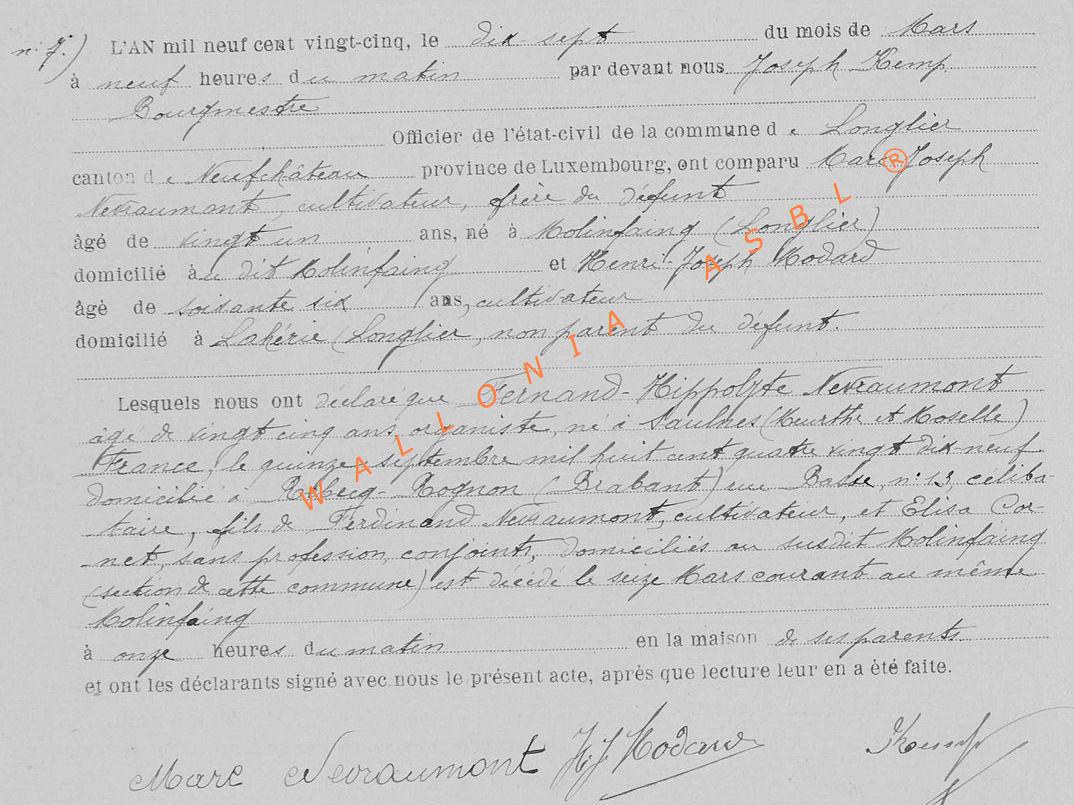 n: 7.) L'AN mil neuf cent vingt-cinq, le dix sept du mois de Mars
à neuf heures du matin par devant nous Joseph Kemp
Bourgmestre
Officier de l'état-civil de la commune de Longlier
canton de Neufchâteau province de Luxembourg, ont comparu Marc-Joseph
Nevraumont, cultivateur, frère du défunt
âgé de vingt un ans, né à Molinfaing (Longlier)
domicilié au dit Molinfaing et Henri-Joseph Modard
âgé de soixante six ans, cultivateur
domicilié à Lahérie (Longlier, non parent du défunt.
Lesquels nous ont déclaré que Fernand-Hippolyte Nevraumont
âgé de vingt cinq ans, organiste, né à Saulnes (Meurthe et Moselle)
France, le quinze septembre mil huit cent quatre vingt dix-neuf
domicilié à Rebecq-Rognon (Brabant) rue Basse, n: 13, céliba-
taire, fils de Ferdinand Nevraumont, cultivateur, et Elisa Cor-
-net, sans profession, conjoints, domiciliés au susdit Molinfaing
(section de cette commune) est décédé le seize Mars courant au même
Molinfaing
à onze heures du matin en la maison de ses parents
et ont les déclarants signé avec nous le présent acte, après que lecture leur en a été faite.
Marc Nevraumont H J Modard Kemp
WALLONIA ASBL ®